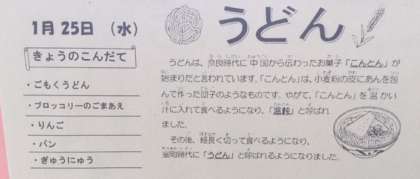 1月25日（水）
きょうのこんだて
・ごもくうどん
・ブロッコリーのごまあえ
・りんご
・パン
・ぎゅうにゅう
うどん
うどんは、奈良時代に中国から伝わったお菓子「こんとん」が
始まりだと言われています。「こんとん」は、小麦粉の皮にあんを包
んで作った団子のようなものです。やがて、「こんとん」を温かい
汁に入れて食べるようになり、「温飩」と呼ばれ
ました。
その後、細長く切って食べるようになり、
室町時代に「うどん」と呼ばれるようになりました。